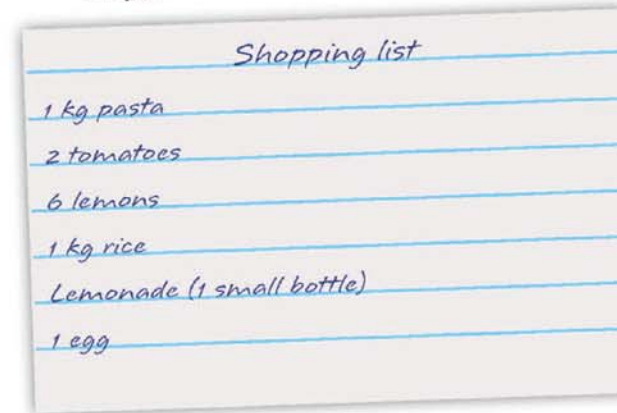 Shopping list
1 kg pasta
2 tomatoes
6 lemons
1 kg rice
Lemonade (1 small bottle)
1 egg